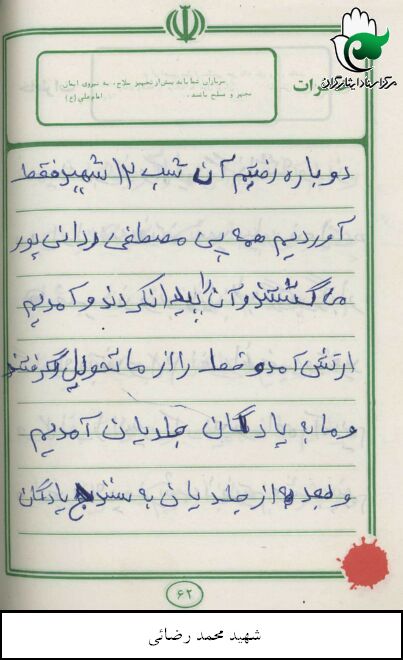 مرکز اسناد ایثارگران
سربازان شما باید بیش از تجهیز سلاح، به نیروی ایمان
مجهز و مسلح باشند.
امام علی (ع)
دوباره رفتیم آن شب ۱۲ شهید فقط
آوردیم همه پی مصطفی ردانی پور
می گشتند و آن را پیدا نکردند و آمدیم
ارتش آمد و خط را از ما تحویل گرفتند
و ما به پادگان جلدیان آمدیم
و بعد از جلدیان به سنندج پادگان
۶۲
شهید محمد رضائی